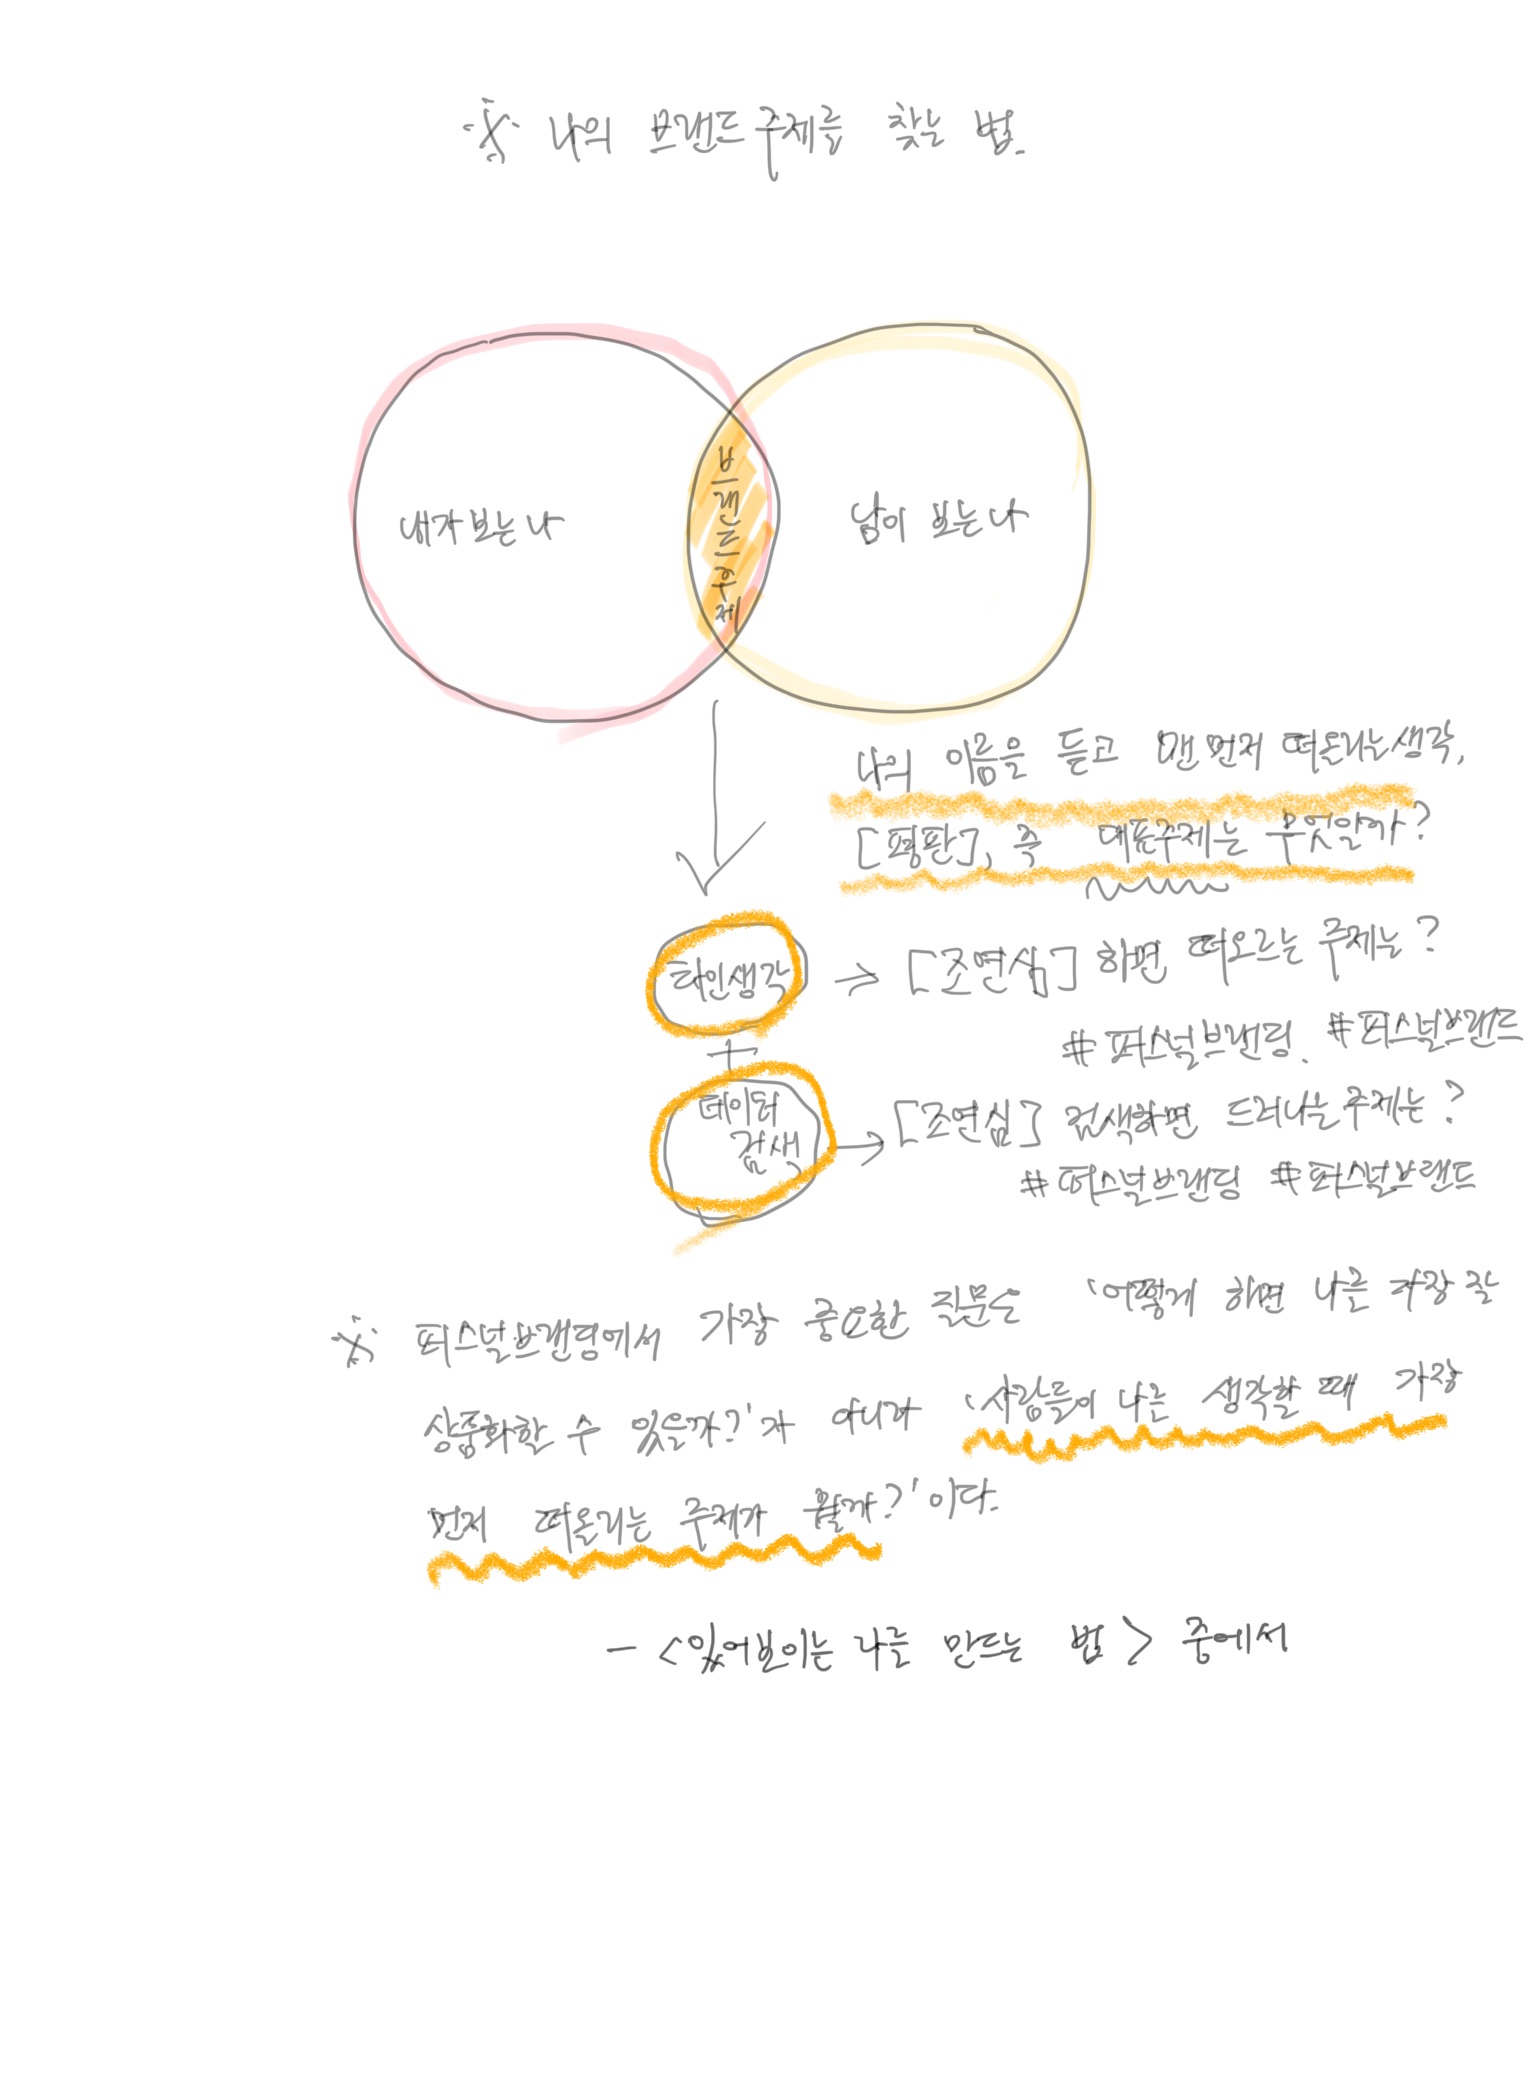 ※ 나의 브랜드 주제를 찾는 법.
내가 보는 나
브랜드 주제
남이 보는 나
나의 이름을 듣고 맨 먼저 떠올리는 생각,
[평판], 즉 대표주제는 무엇일까?
타인생각
→ [조연심] 하면 떠오르는 주제는?
#퍼스널브랜딩. #퍼스널브랜드
+
데이터
검색
→ [조연심] 검색하면 드러나는 주제는?
#퍼스널브랜딩 #퍼스널브랜드
※ 퍼스널브랜딩에서 가장 중요한 질문은 '어떻게 하면 나를 가장 잘
상품화할 수 있을까?'가 아니라 '사람들이 나를 생각할 때 가장
먼저 떠올리는 주제가 뭘까?'이다.
- <있어보이는 나를 만드는 법> 중에서